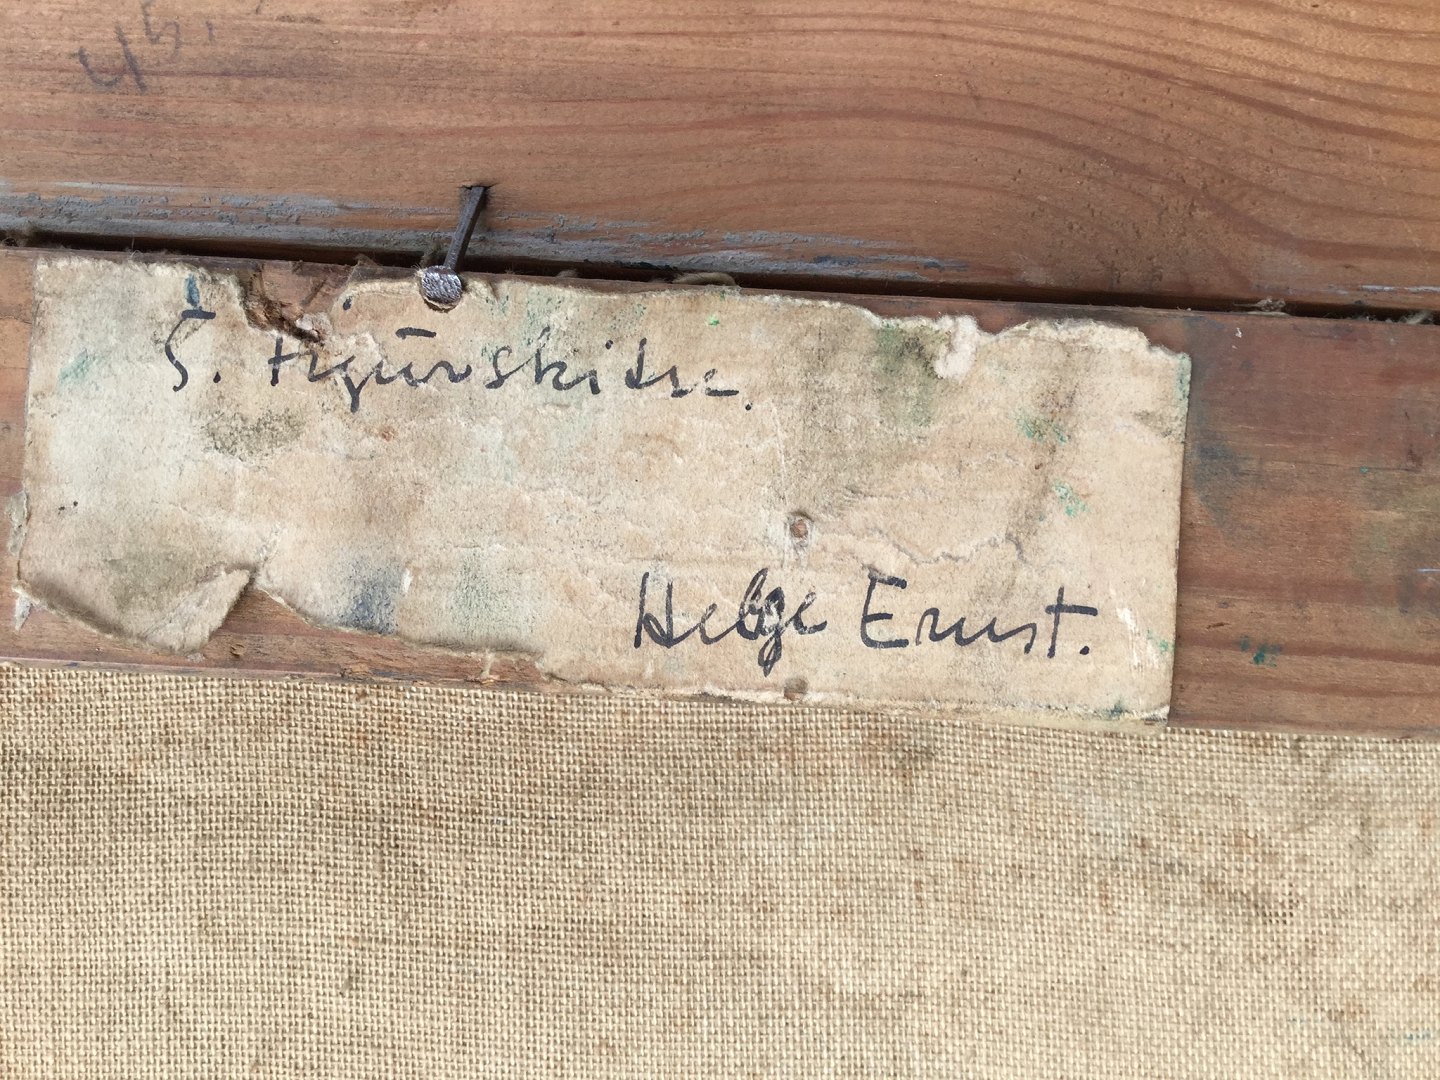 45.
5. Figurskitse.
Helge Ernst.